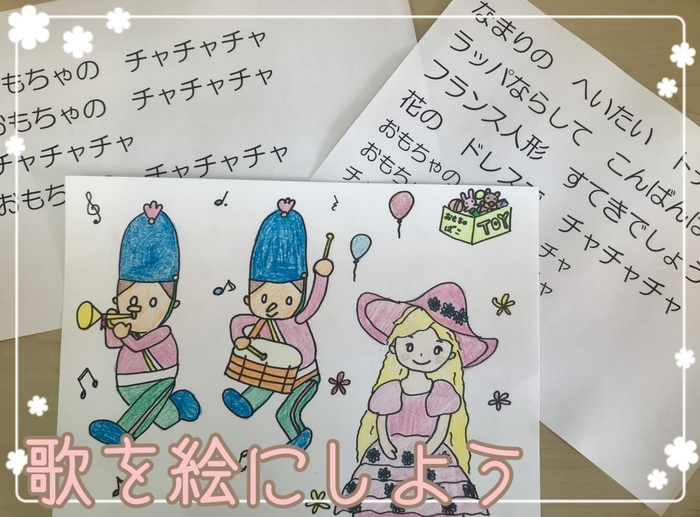 もちゃの チャチャチャ
おもちゃの チャチャチャ
チャチャチャ
おもち チャチャチャ
なまりの へいたい
ラッパならして こんばん
フランス人形 すてきでしょ
花の ドレス チャチャチャ
おもちゃの チャ
おもち
おもちゃ
ばこ
TOY
歌を絵にしよう